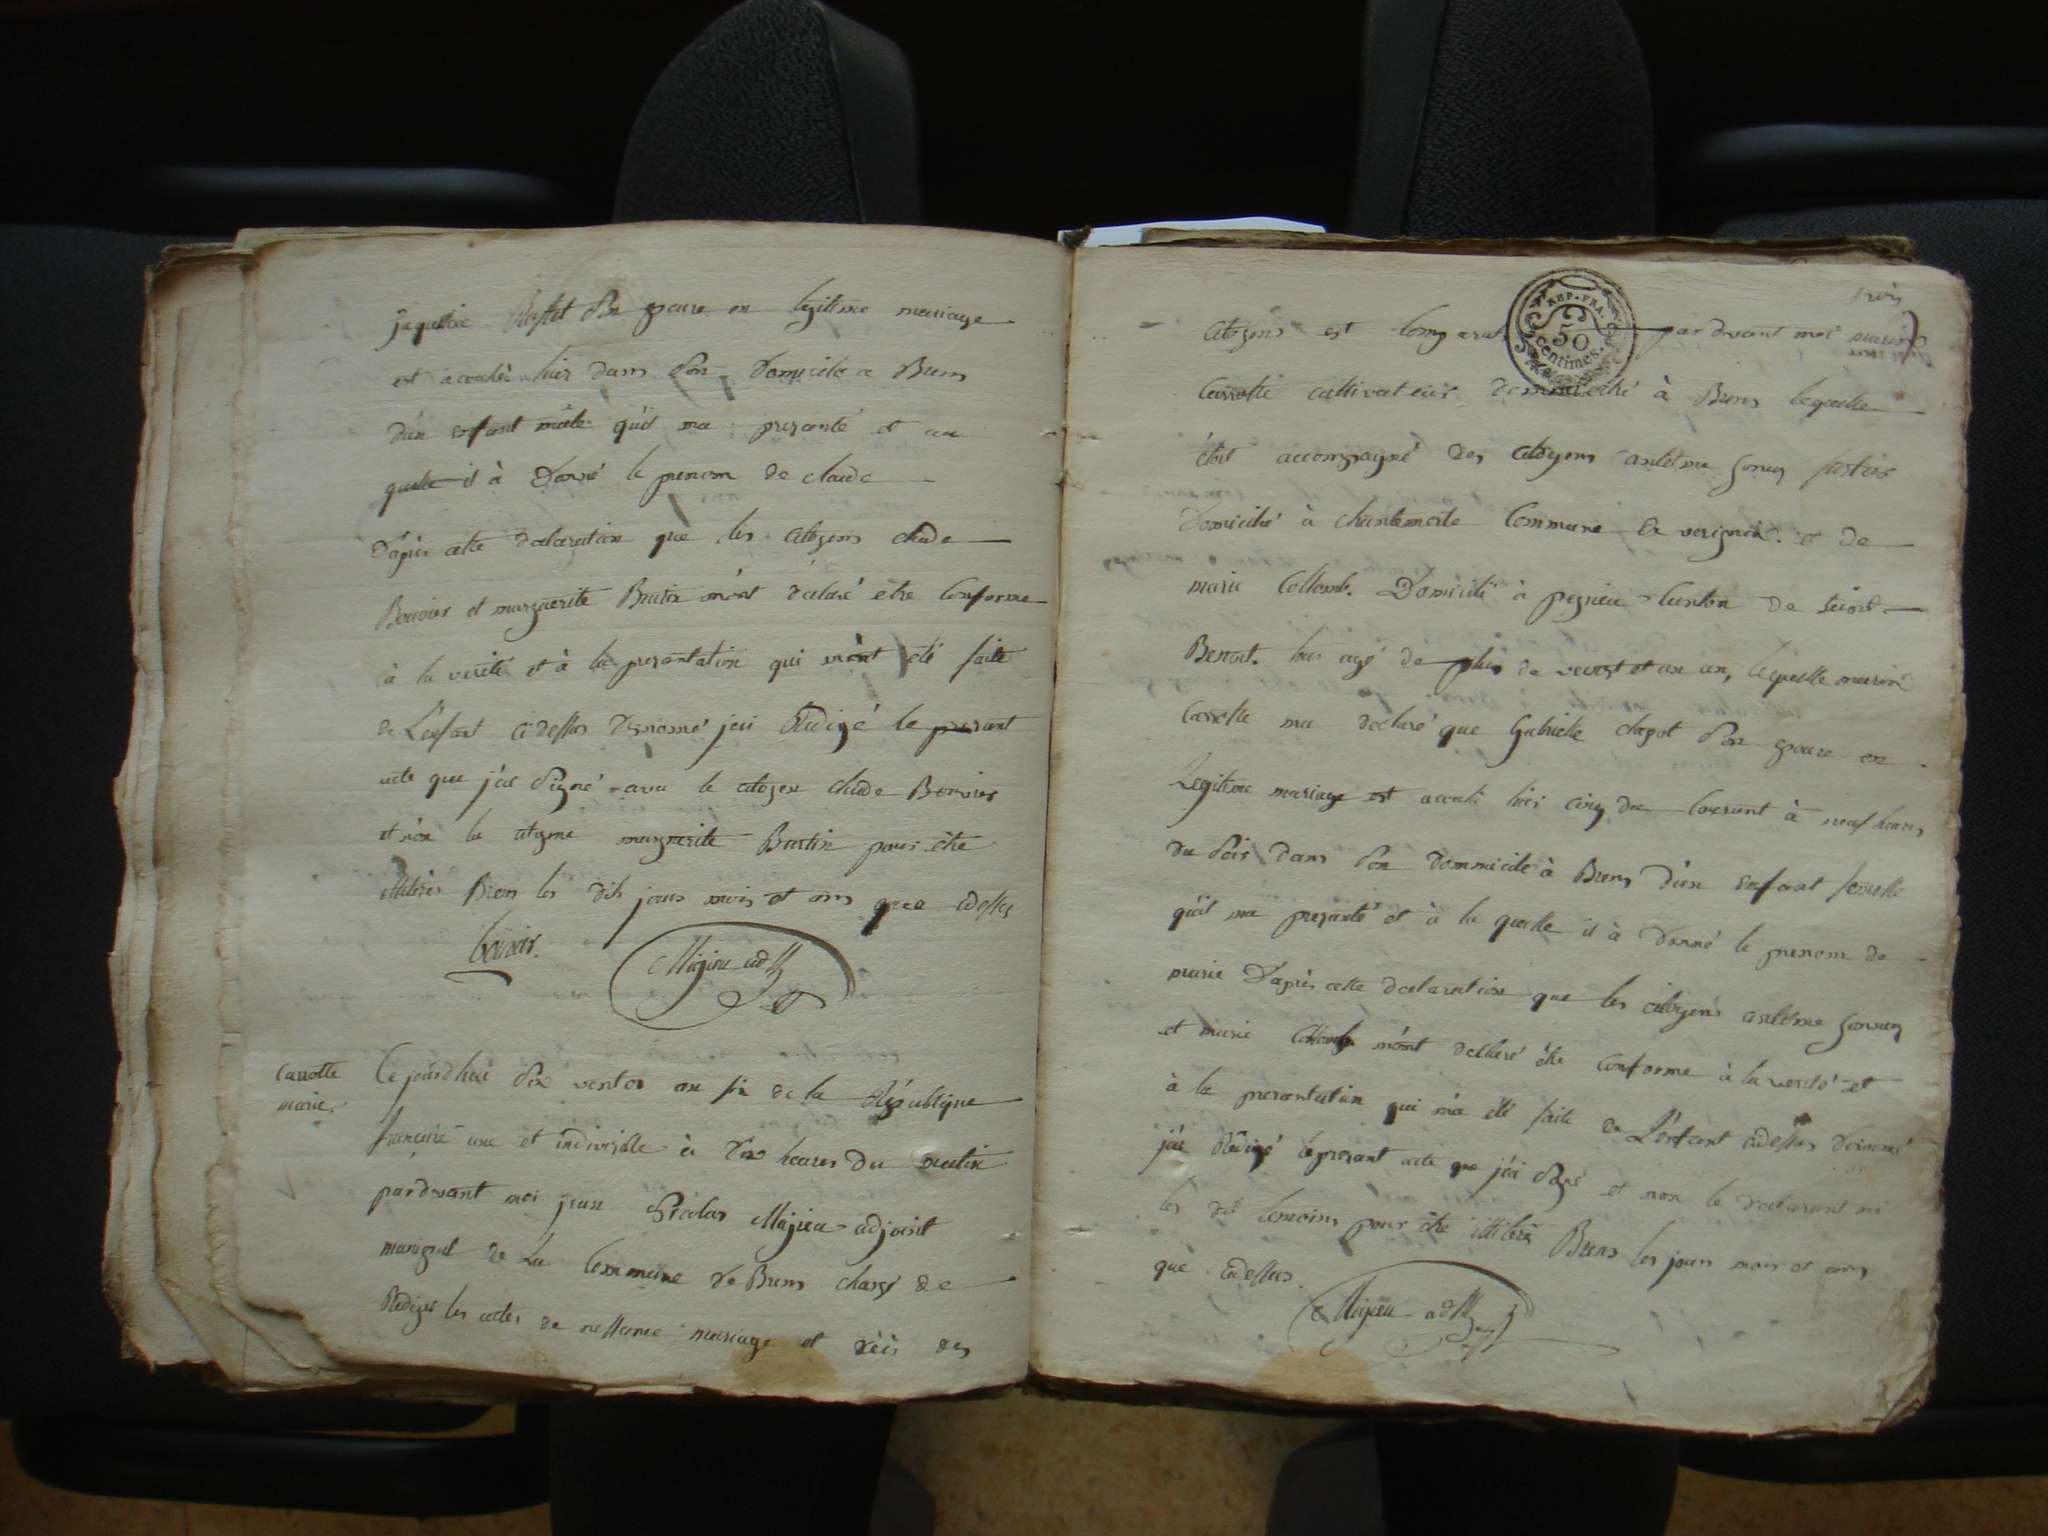 jaqueline son epouse en legitime mariage
est acouché hier dans son Domicile a Brens
d'un enfant mâle qu'il ma presanté et au
quelle il à Donné le prenom de claude
D'apres cette declaration que les citoyens claude
Bouvier et marguerite Burtin m'ont déclaré etre Conforme
à la verité et à la presantation qui m'ont eté faite
de L'enfant cidessus denomé jai Rédigé le present
acte que j'ai signé avec le citoyen claude Bouvier
et non la citoyene marguerite Burtin pour être
illiteré Brens les dits jours mois et ans que cidessus
bouvier.
Majeu adj
Carrotte
marie.
Ce jourd'hui six ventos an six de la République
francaise une et indivisible à dix heures du matin
pardevant moi jean Nicolas Majeu adjoint
municipal de La Commune de Brens chargé de
Rédiger les actes de nessance mariage et décès des
trois
REP. FRA.
50
centimes.
citoyens est comparut par devant moi marin
Carrotte cultivateur dommicilié à Brens lequelle
étoit accompagné des citoyens antelme
Domicilié à chantemerle Commune de verignin. et de
marie Collomb. Domicilié à pezieu Canton de Saint
Benoit. tous agé de plus de veingt et un an, lequelle marin
Carrotte ma declaré que Gabrielle clapot son epouse en
Legitime mariage est acouché hier cinq du Courant à neuf heures
du soir dans son dommicile à Brens d'un enfant femelle
qu'il ma presanté et à la quelle il à donné le prenom de
marie D'apres cette declaration que les citoyens antelme
et marie Collomb m'ont declaré être conforme à la verité et
à la presantation qui m'a été faite de L'enfant cidessus denommé
j'ai Rédigé le presant acte que j'ai signé et non le declarant ni
les dit temoins pour être illiteré Brens les jours mois et ans
que cidessus.
Majeu adj